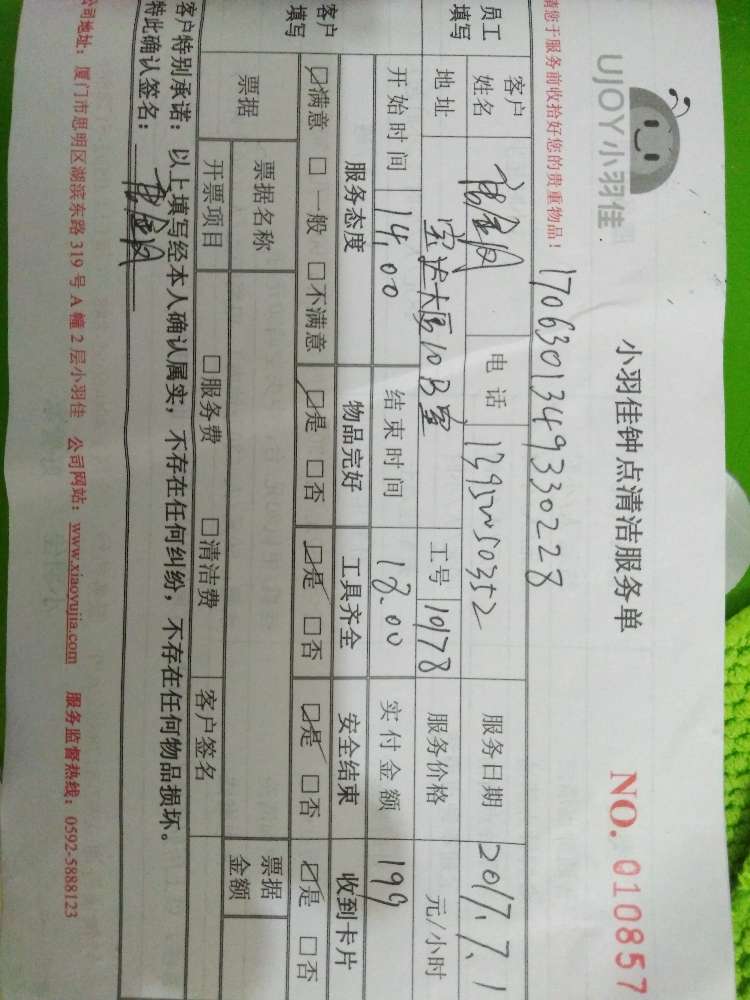 UJOY小羽佳
小羽佳钟点清洁服务单
NO. 010857
请您于服务前收拾好您的贵重物品！
1706301349330228
员工填写 客户姓名 电话 服务日期 2017.7.1
地址 宝达大厦10B室 工号 1078 服务价格 元/小时
开始时间 14.00 结束时间 18.00 实付金额 199
客户填写 服务态度 物品完好 工具齐全 安全结束 收到卡片
☑满意 □一般 □不满意 ☑是 □否 ☑是 □否 ☑是 □否 ☑是 □否
票据 票据名称 票据金额
开票项目 □服务费 □清洁费 客户签名
客户特别承诺：以上填写经本人确认属实，不存在任何纠纷，不存在任何物品损坏。
特此确认签名：
公司地址：厦门市思明区湖滨东路 319 号 A 幢 2 层小羽佳 公司网站：www.xiaoyujia.com 服务监督热线：0592-5888123